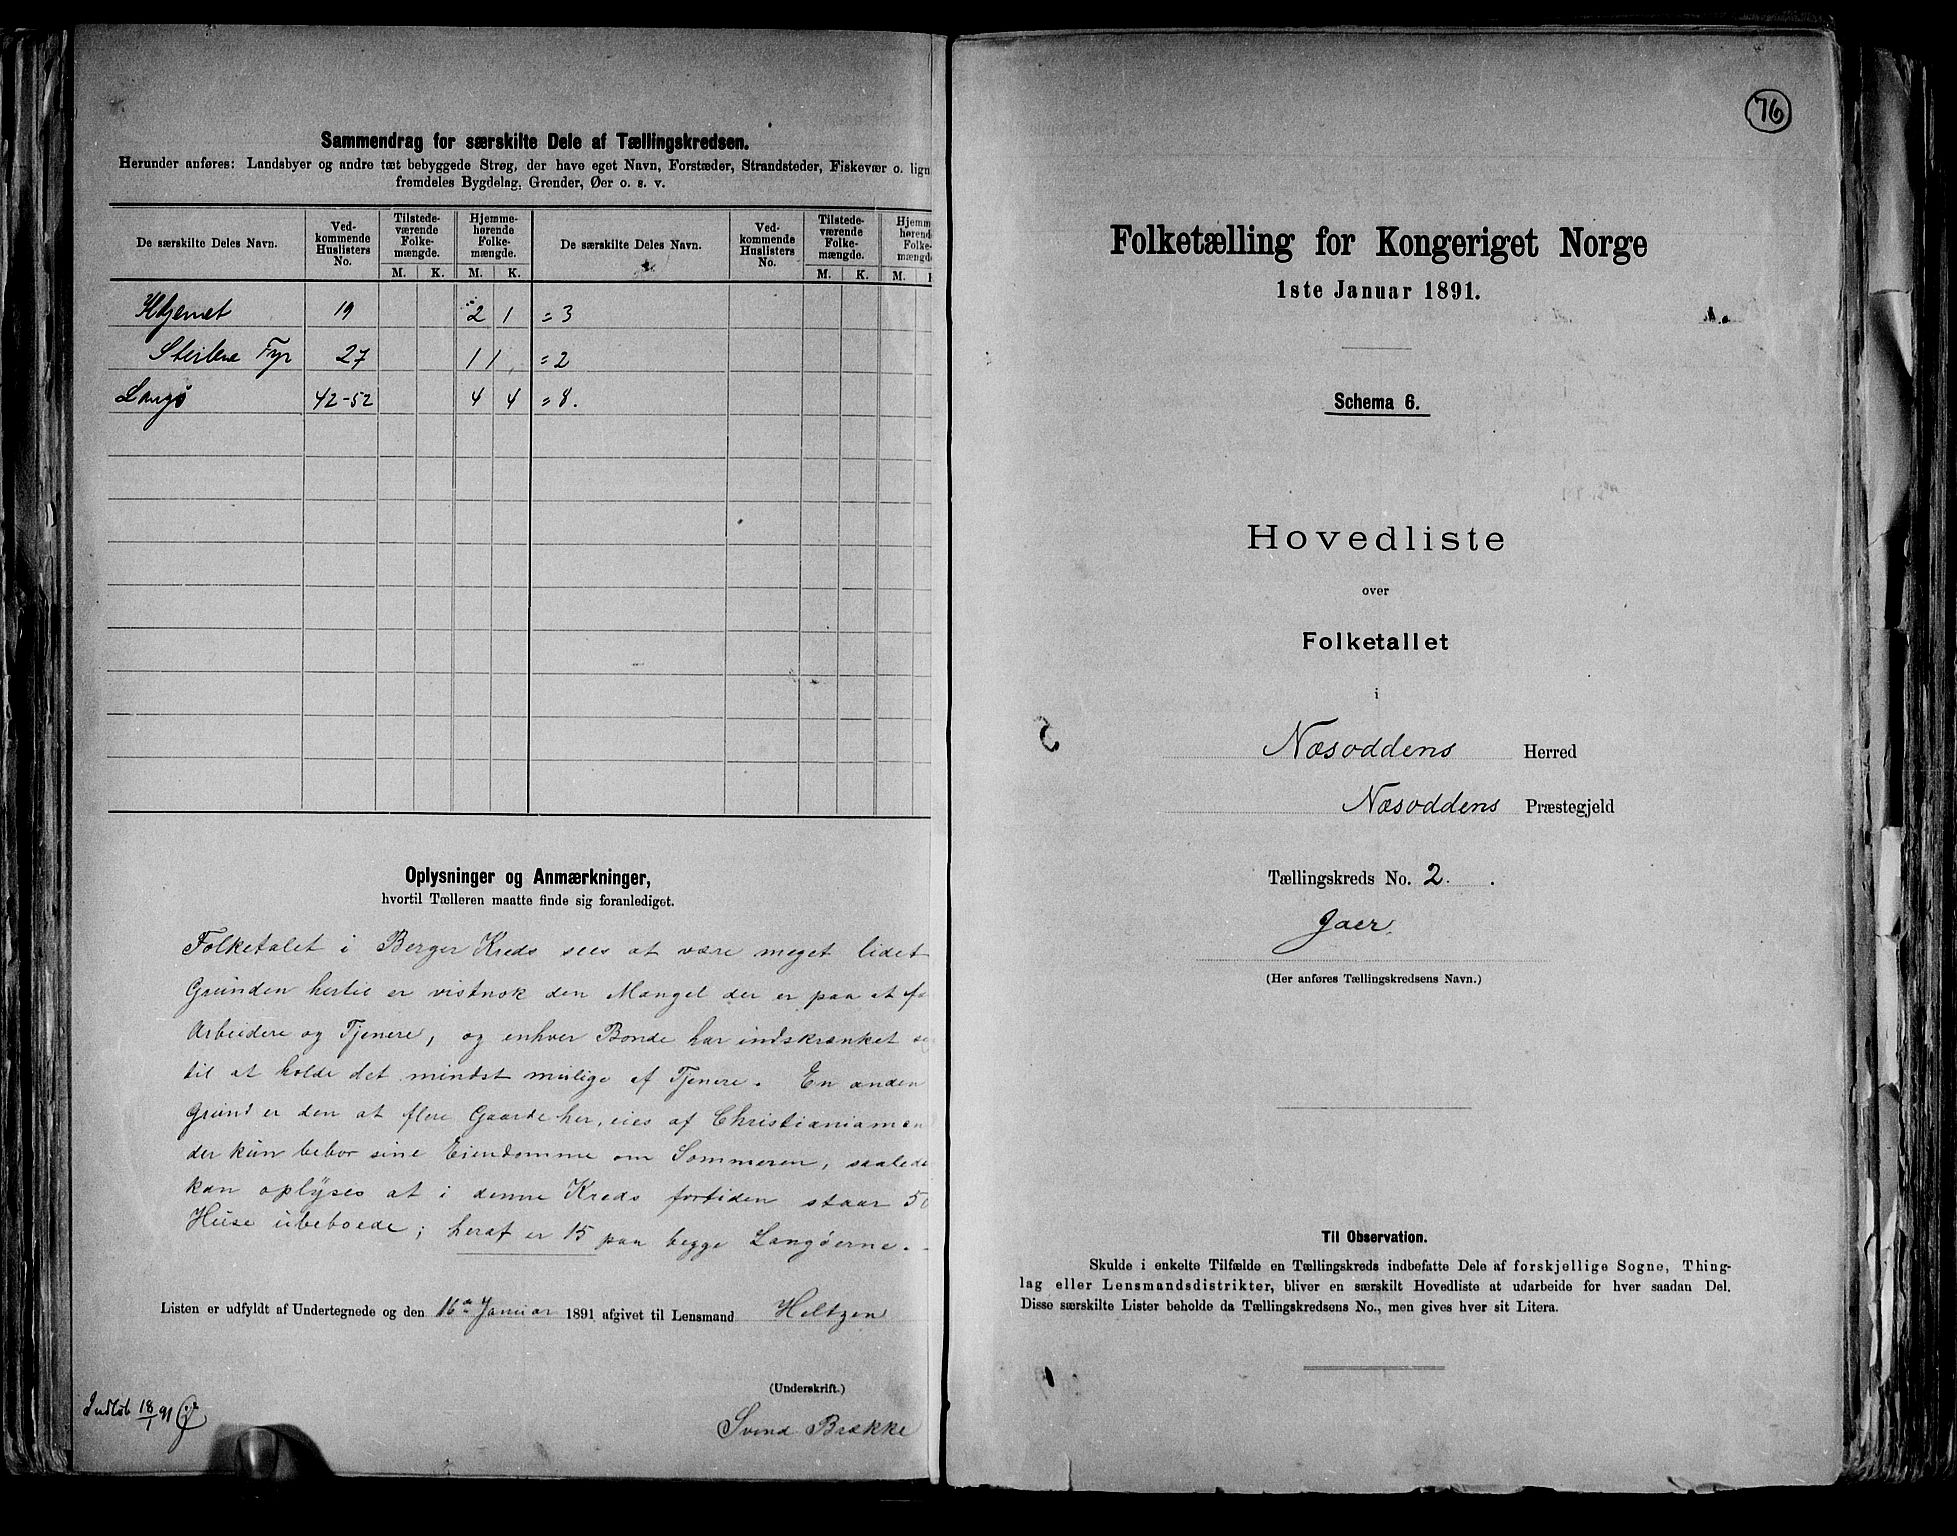 Sammendrag for særskilte Dele af Tællingskredsen.
Herunder anføres: Landsbyer og andre tæt bebyggede Strøg, der have eget Navn, Forstæder, Strandsteder, Fiskevær o. lign
fremdeles Bygdelag, Grender, Øer o. s. v.
De særskilte Deles Navn. Ved-kommende Huslisters No. Tilstede-værende Folke-mængde. Hjemme-hørende Folke-mængde. De særskilte Deles Navn. Ved-kommende Huslisters No. Tilstede-værende Folke-mængde. Hjemm hørende Folke- mængde
M. K. M. K. M. K. M.
19 2 1 = 3
Steilene Fyr 27 1 1 = 2
Langø 42-52 4 4 = 8.
Oplysninger og Anmærkninger,
hvortil Tælleren maatte finde sig foranlediget.
Folketalet i Berger Kreds sees at være meget lidet
Grunden hertil er vistnok den Mangel der er paa at
Arbeidere og Tjenere, og enhver Bonde har indskrænket
til at holde det mindst mulige af Tjenere. En anden
Grund er den at flere Gaarde her, eies af Christianiamæn
der kun bebor sine Eiendomme om Sommeren, saalede
kan oplyses at i denne Kreds fortiden staar 5
Huse ubeboede; heraf er 15 paa begge Langøerne.
Listen er udfyldt af Undertegnede og den 16de Januar 1891 afgivet til Lensmand Heltzen
(Underskrift.)
Svend Brække
Indløb 18/1 91
76
Folketælling for Kongeriget Norge
1ste Januar 1891.
Schema 6.
Hovedliste
over
Folketallet
i
Næsoddens Herred
Næsoddens Præstegjeld
Tællingskreds No. 2.
Jaer
(Her anføres Tællingskredsens Navn.)
Til Observation.
Skulde i enkelte Tilfælde en Tællingskreds indbefatte Dele af forskjellige Sogne, Thing-
lag eller Lensmandsdistrikter, bliver en særskilt Hovedliste at udarbeide for hver saadan Del.
Disse særskilte Lister beholde da Tællingskredsens No., men gives hver sit Litera.